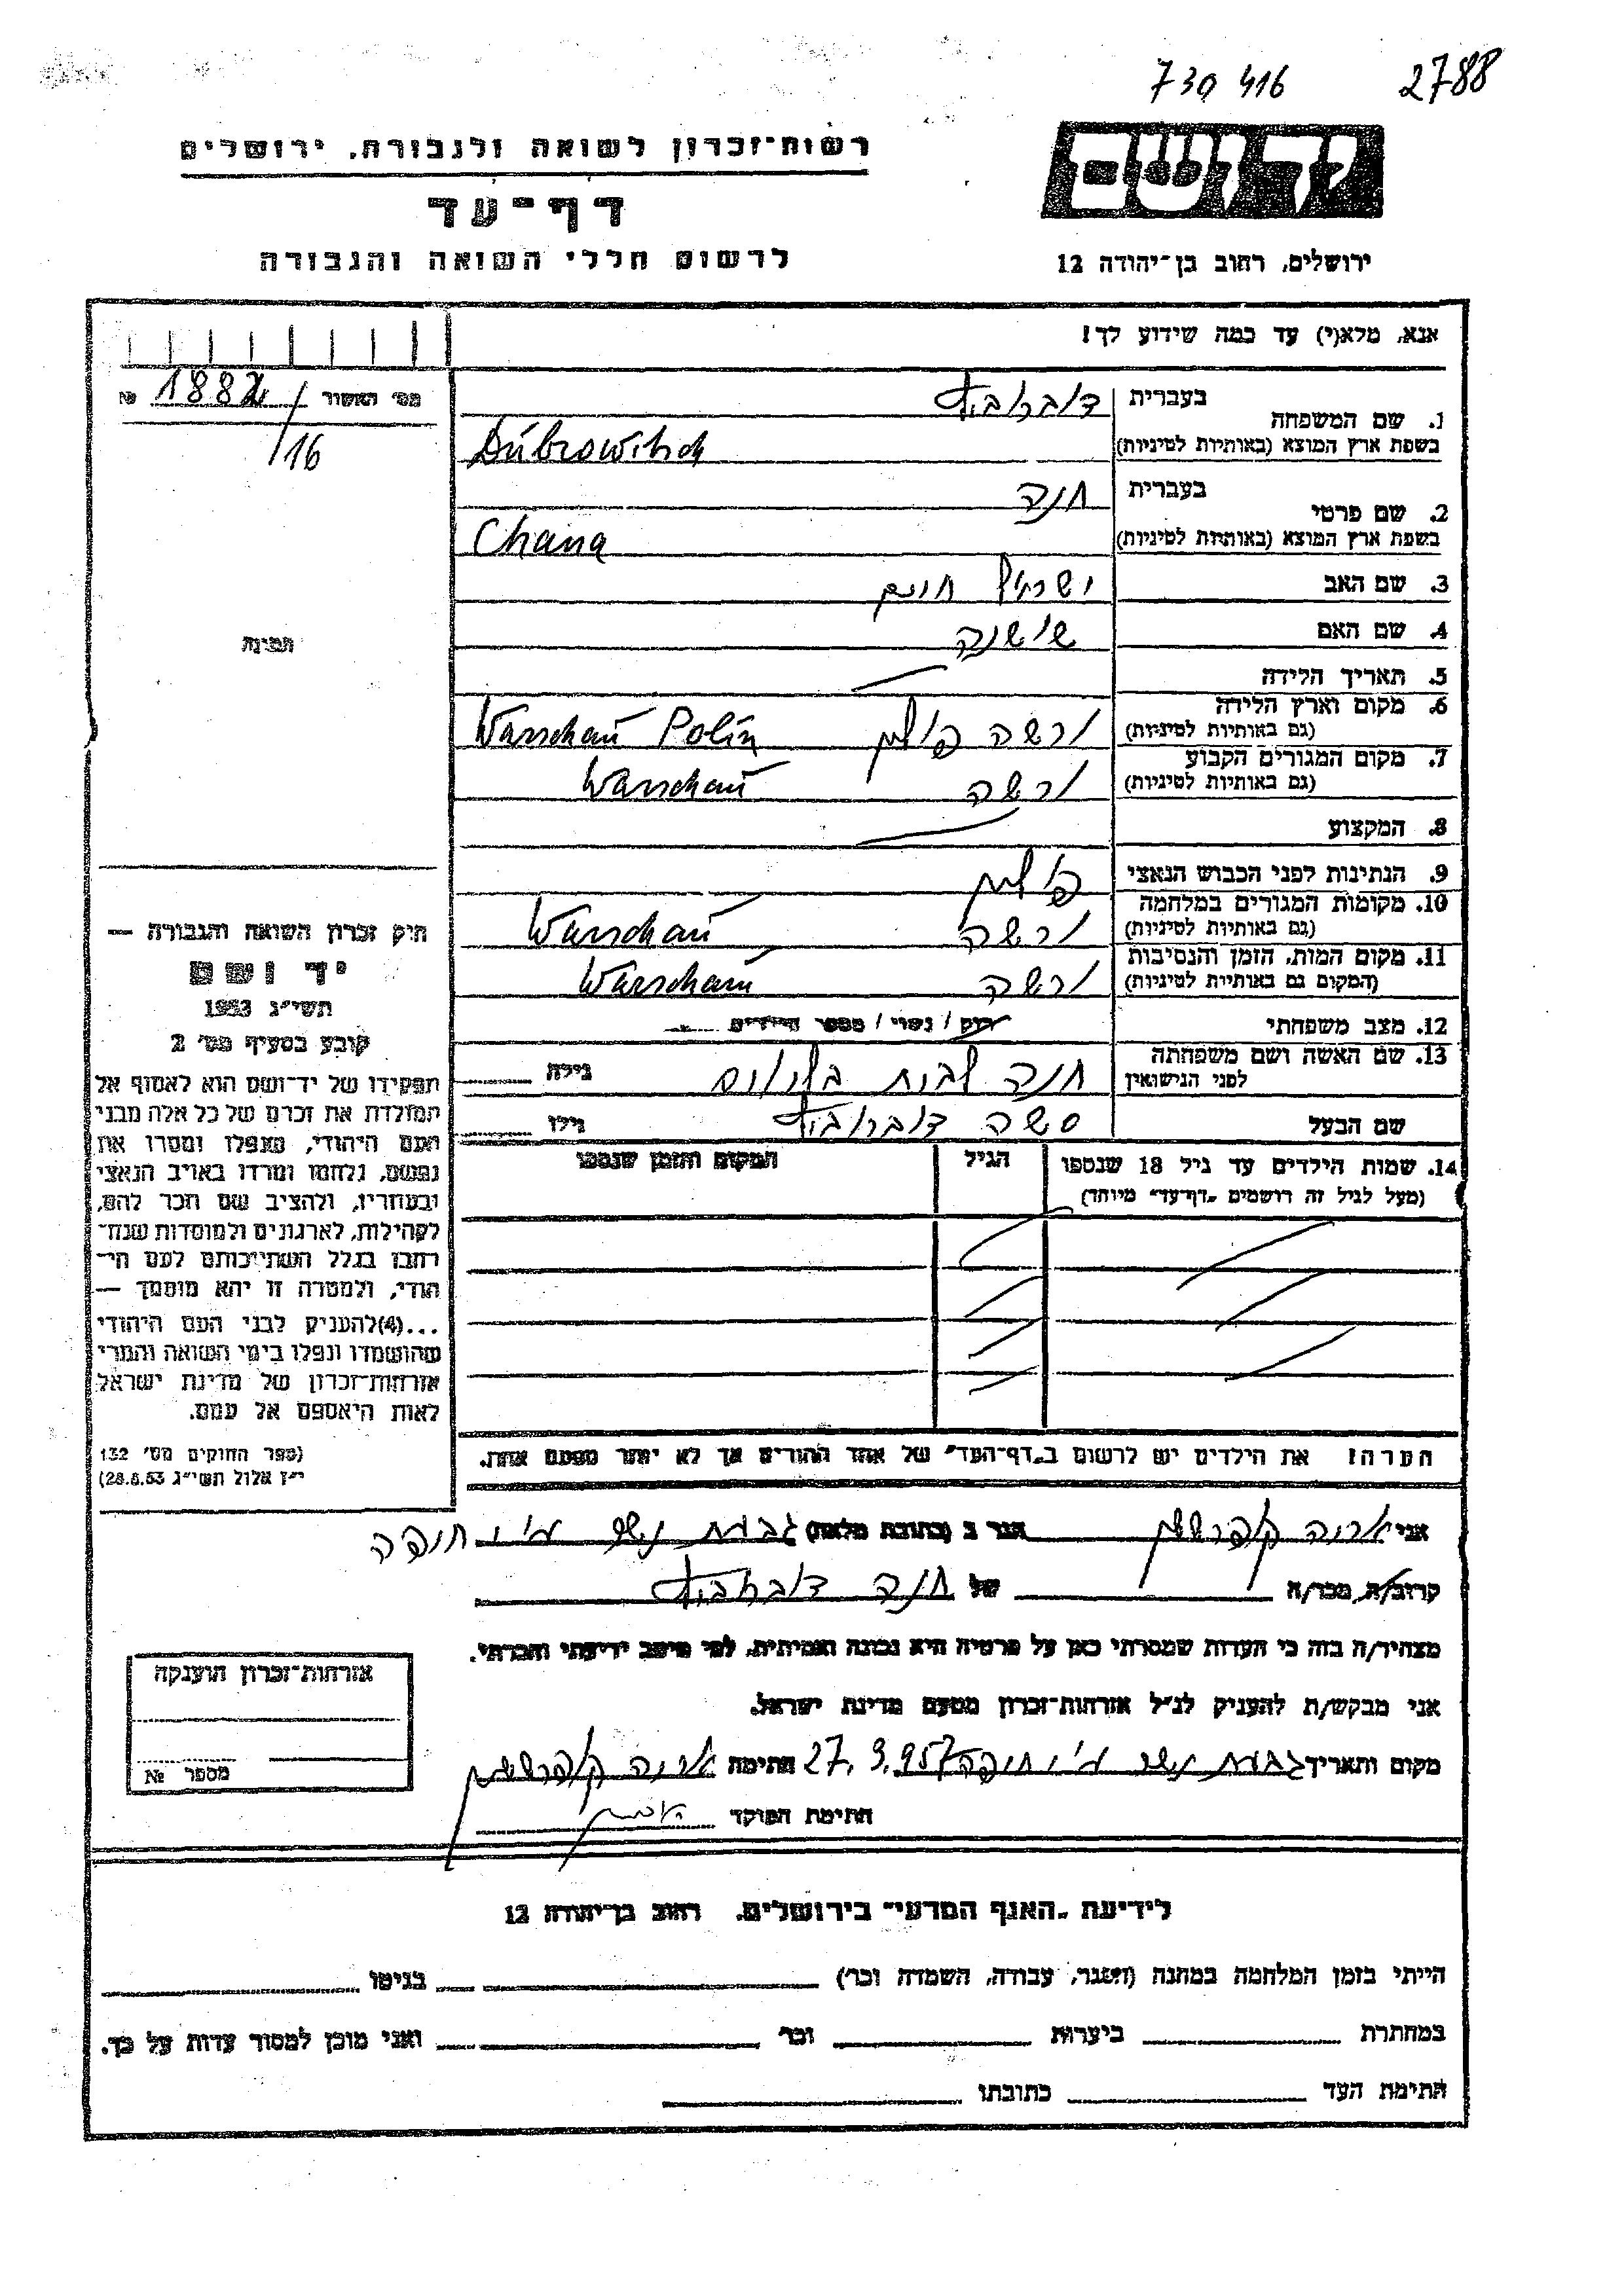 730 416 2788
יד ושם
רשות־זכרון לשואה ולגבורה, ירושלים
דף־עד
לרשום חללי השואה והגבורה
ירושלים, רחוב בן־יהודה 12
אנא, מלא(י) עד כמה שידוע לך!
מס׳ האשור 1882/16 №
1. שם המשפחה
בעברית
בשפת ארץ המוצא (באותיות לטיניות) Dubrowitsch
2. שם פרטי
בעברית חנה
בשפת ארץ המוצא (באותיות לטיניות) Chana
3. שם האב ישראל חיים
4. שם האם שושנה
5. תאריך הלידה
6. מקום וארץ הלידה ורשה פולין Warschau Polin
(גם באותיות לטיניות)
7. מקום המגורים הקבוע ורשה Warschau
(גם באותיות לטיניות)
8. המקצוע
9. הנתינות לפני הכבוש הנאצי פולין
10. מקומות המגורים במלחמה ורשה Warschau
(גם באותיות לטיניות)
11. מקום המות, הזמן והנסיבות ורשה Warschau
(המקום גם באותיות לטיניות)
12. מצב משפחתי רווק / נשוי / מספר הילדים
13. שם האשה ושם משפחתה חנה לבית גילה
לפני הנישואין
שם הבעל גילו
14. שמות הילדים עד גיל 18 שנספו הגיל המקום והזמן שנספו
(מעל לגיל זה רושמים „דף־עד״ מיוחד)
הערה! את הילדים יש לרשום ב„דף־העד״ של אחד ההורים אך לא יותר מפעם אחת.
תמונה
חוק זכרון השואה והגבורה —
יד ושם
תשי״ג 1953
קובע בסעיף מס׳ 2
תפקידו של יד־ושם הוא לאסוף אל
המולדת את זכרם של כל אלה מבני
העם היהודי, שנפלו ומסרו את
נפשם, נלחמו ומרדו באויב הנאצי
ובעוזריו, ולהציב שם וזכר להם,
לקהילות, לארגונים ולמוסדות שנח־
רבו בגלל השתייכותם לעם הי־
הודי, ולמטרה זו יהא מוסמך —
...(4) להעניק לבני העם היהודי
שהושמדו ונפלו בימי השואה והמרי
אזרחות־זכרון של מדינת ישראל
לאות היאספם אל עמם.
(ספר החוקים מס׳ 132
י״ז אלול תשי״ג 28.8.53)
אני אריה הגר ב (כתובת מלאה) גבעת נשר ע״י חיפה
קרוב/ה, מכר/ה של חנה
מצהיר/ה בזה כי העדות שמסרתי כאן על פרטיה היא נכונה ואמיתית, לפי מיטב ידיעתי והכרתי.
אני מבקש/ת להעניק לנ״ל אזרחות־זכרון מטעם מדינת ישראל.
מקום ותאריך גבעת נשר ע״י חיפה 27.3.957 חתימה אריה
חתימת הפוקד
אזרחות־זכרון הוענקה
מספר №
לידיעת „האגף המדעי״ בירושלים, רחוב בן־יהודה 12
הייתי בזמן המלחמה במחנה (הסגר, עבודה, השמדה וכו׳) בגיטו
במחתרת ביערות וכו׳ ואני מוכן למסור עדות על כך.
חתימת העד כתובתו